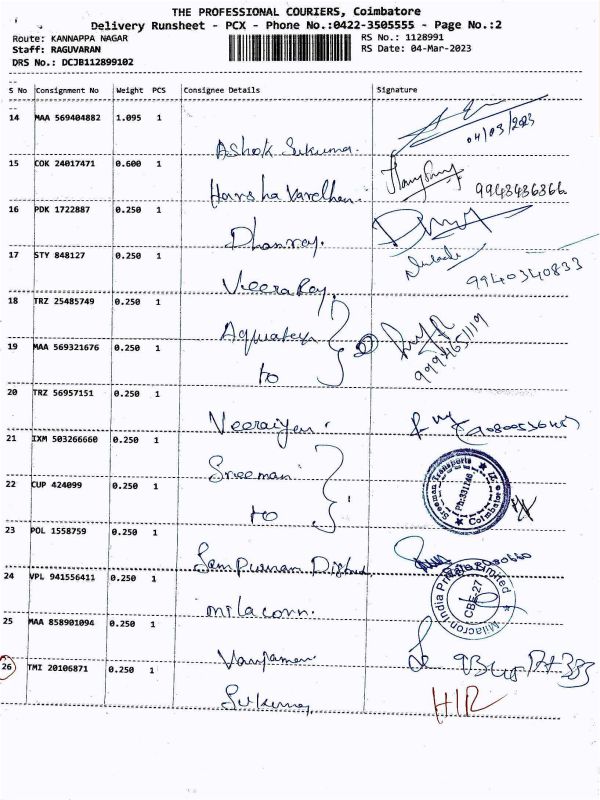 THE PROFESSIONAL COURIERS, Coimbatore
Delivery Runsheet - PCX - Phone No.:0422-3505555 - Page No.:2
Route: KANNAPPA NAGAR
RS No.: 1128991
Staff: RAGUVARAN
RS Date: 04-Mar-2023
DRS No.: DCJB112899102
S No Consignment No Weight PCS Consignee Details Signature
14 MAA 569404882 1.095 1
Ashok Sukumar
04/03/2023
15 COK 24017471 0.600 1
Harsha Vardhan
9948486366
16 PDK 1722887 0.250 1
Dhanraj
17 STY 848127 0.250 1
Veera Raj
9940340833
18 TRZ 25485749 0.250 1
Aquatex
19 MAA 569321676 0.250 1
to
9994651119
20 TRZ 56957151 0.250 1
Veeraiyen
21 IXM 503266660 0.250 1
Sreeman
Sreeman Transports
Coimbatore
22 CUP 424099 0.250 1
to
23 POL 1558759 0.250 1
Sampurnam
24 VPL 941556411 0.250 1
milacorn.
Milacron India Private Limited
CBE-27
25 MAA 858901094 0.250 1
26 TMI 20106871 0.250 1
Sukumar